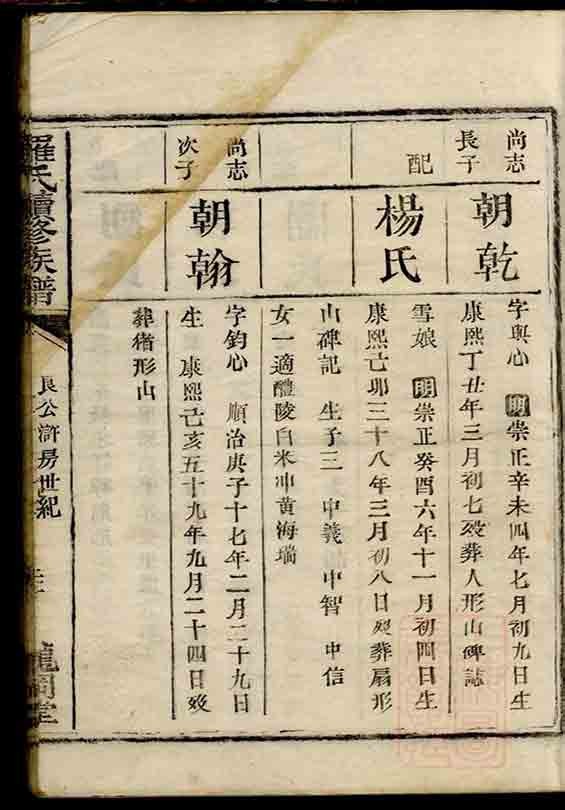 尚志
長子
朝乾
字與心 明崇正辛未四年七月初九日生
康熙丁丑年三月初七歿葬人形山碑誌
配
楊氏
雪娘 明崇正癸酉六年十一月初四日生
康熙己卯三十八年三月初八日歿葬扇形
山碑記 生子三 中義 中智 中信
女一適醴陵白米冲黃海瑞
尚志
次子
朝翰
字鈞心 順治庚子十七年二月二十九日
生 康熙己亥五十九年九月二十四日歿
葬猪形山
羅氏續修族譜
良公滸房世紀